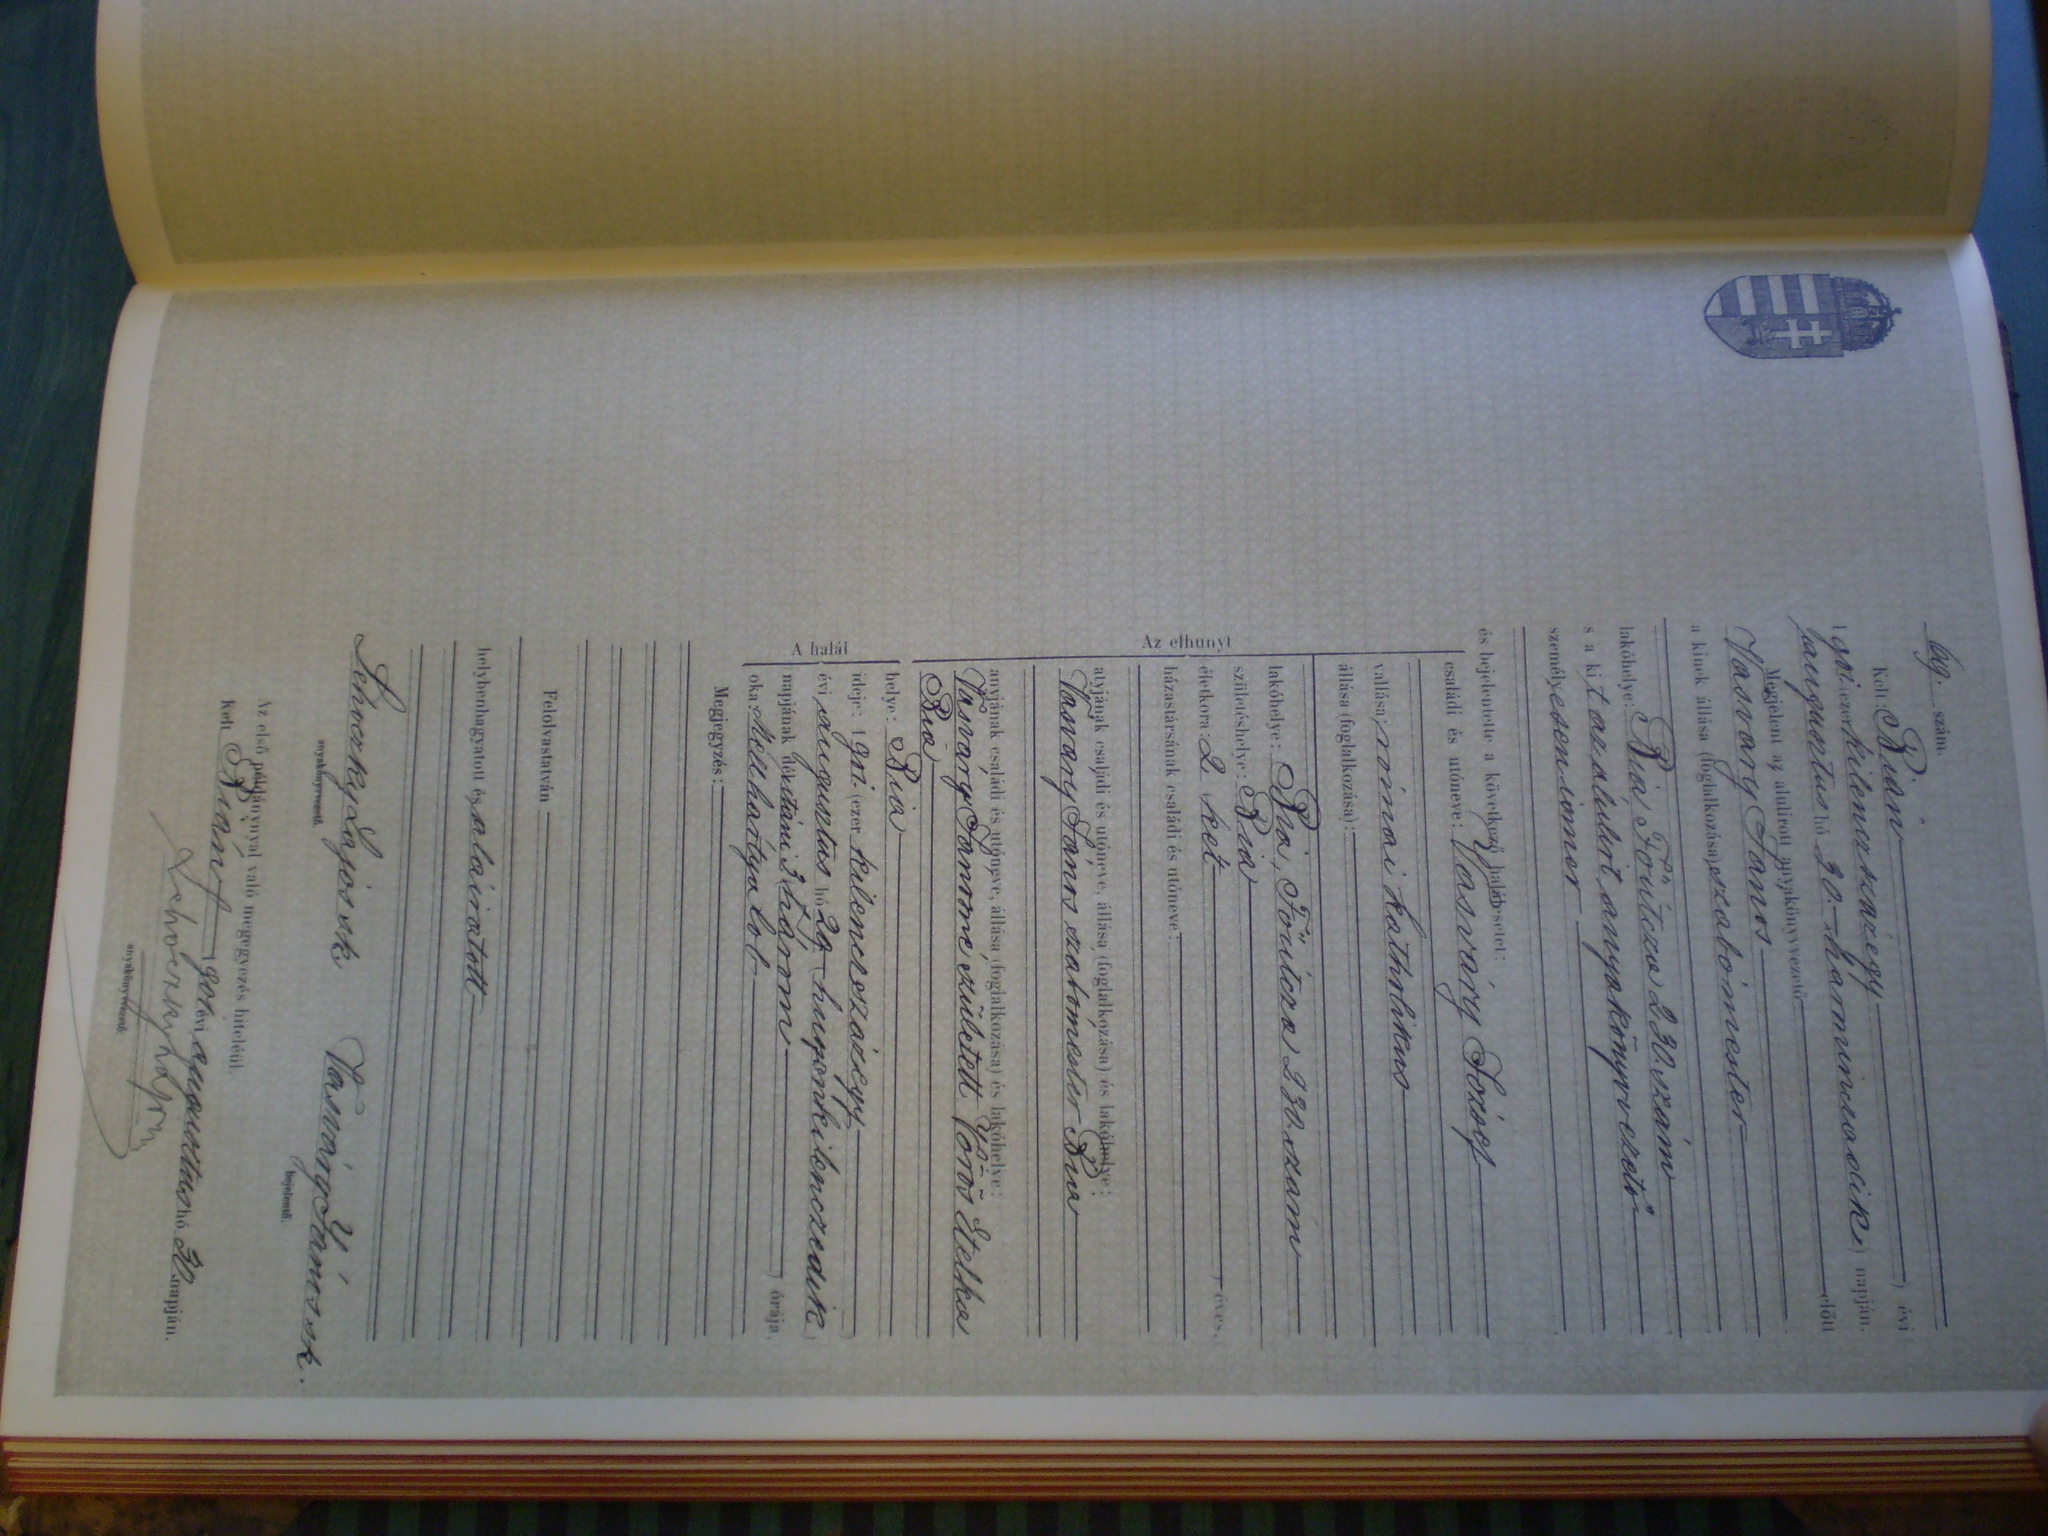 szám.
Kelt: Bián évi
901. (ezer kilenczszázegy
augusztus hó 30. harminczadik) napján.
Megjelent az alulírott anyakönyvvezető előtt
Vasváry János
a kinek állása (foglalkozása) szabómester
lakóhelye: Bia, Főutcza 230. szám
s a kit az alulirt anyakönyvvezető
személyesen ismer
és bejelentette a következő halálesetet:
családi és utóneve: Vasváry József
vallása: római katholikus
állása (foglalkozása):
lakóhelye: Bia, Főutcza 230. szám
születéshelye: Bia
életkora: 2 két ) éves.
házastársának családi és utóneve:
Az elhunyt
atyjának családi és utóneve, állása (foglalkozása) és lakóhelye:
Vasváry János szabómester Bia
anyjának családi és utóneve, állása (foglalkozása) és lakóhelye:
Vasváry Jánosné született Vörös Etelka
Bia,
A halál
helye: Bia
ideje: 1901. (ezer kilenczszázegy
évi augusztus hó 29 huszonkilenczedik )
napjának délutáni 3 három ) órája.
oka:
Megjegyzés:
Felolvastatván
helybenhagyatott és aláiratott
Schoczky Lajos sk Vasváry János sk.
anyakönyvvezető. bejelentő.
Az első példánynyal való megegyezés hiteléül.
Kelt Bián, 1901 évi augusztus hó 30 napján.
anyakönyvvezető.